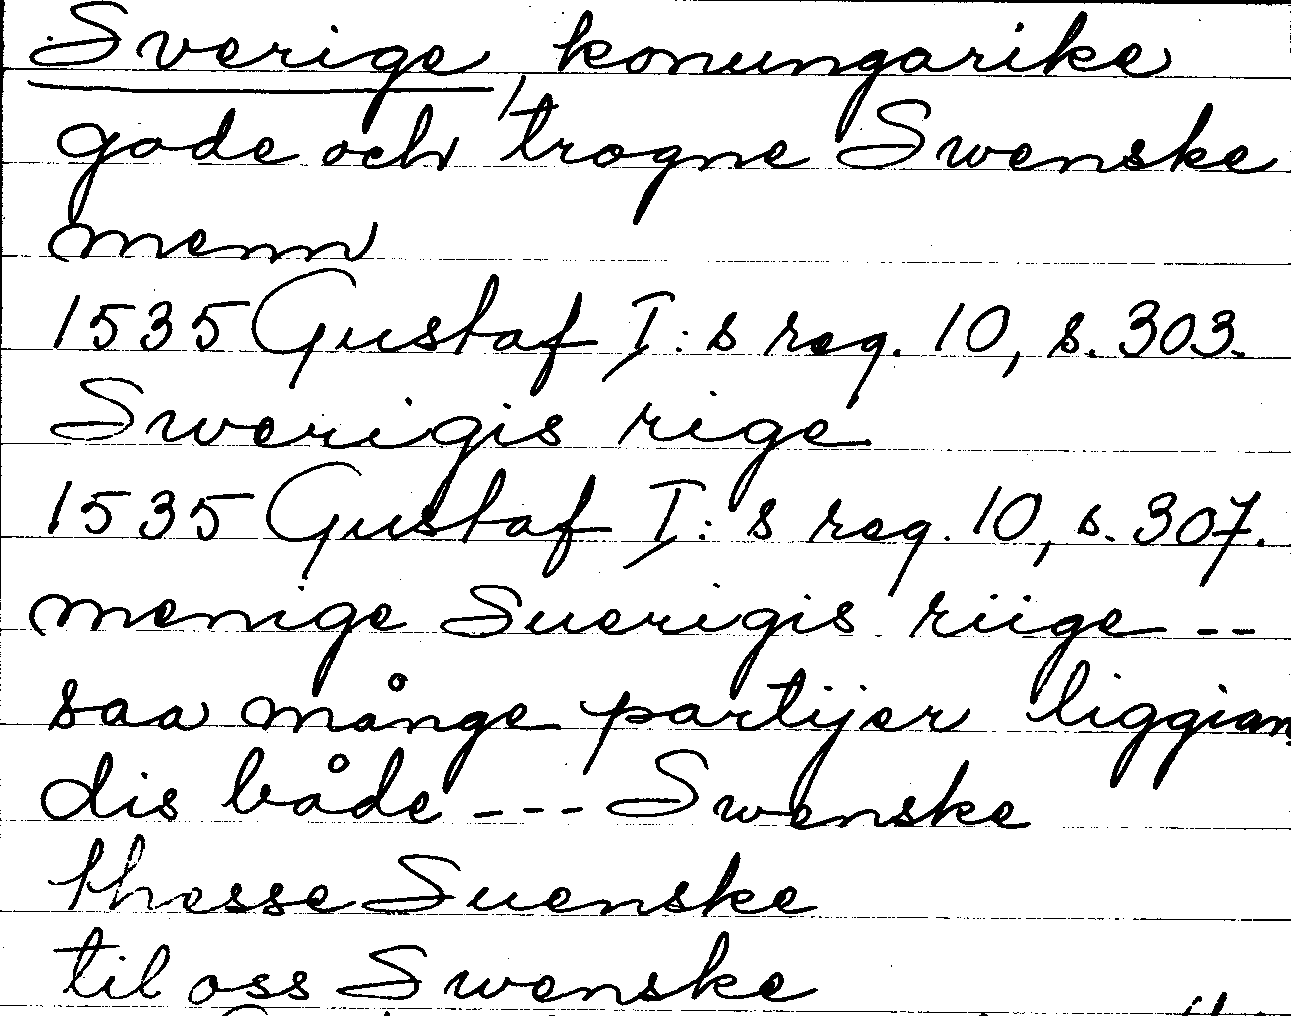 Sverige, konungarike
gode och trogne Swenske
menn
1535 Gustaf I:s reg. 10, s. 303.
Swerigis rige
1535 Gustaf I:s reg. 10, s. 307.
menige Suerigis riige --
saa månge partijer liggian
dis både --- Swenske
thesse Suenske
til oss Swenske